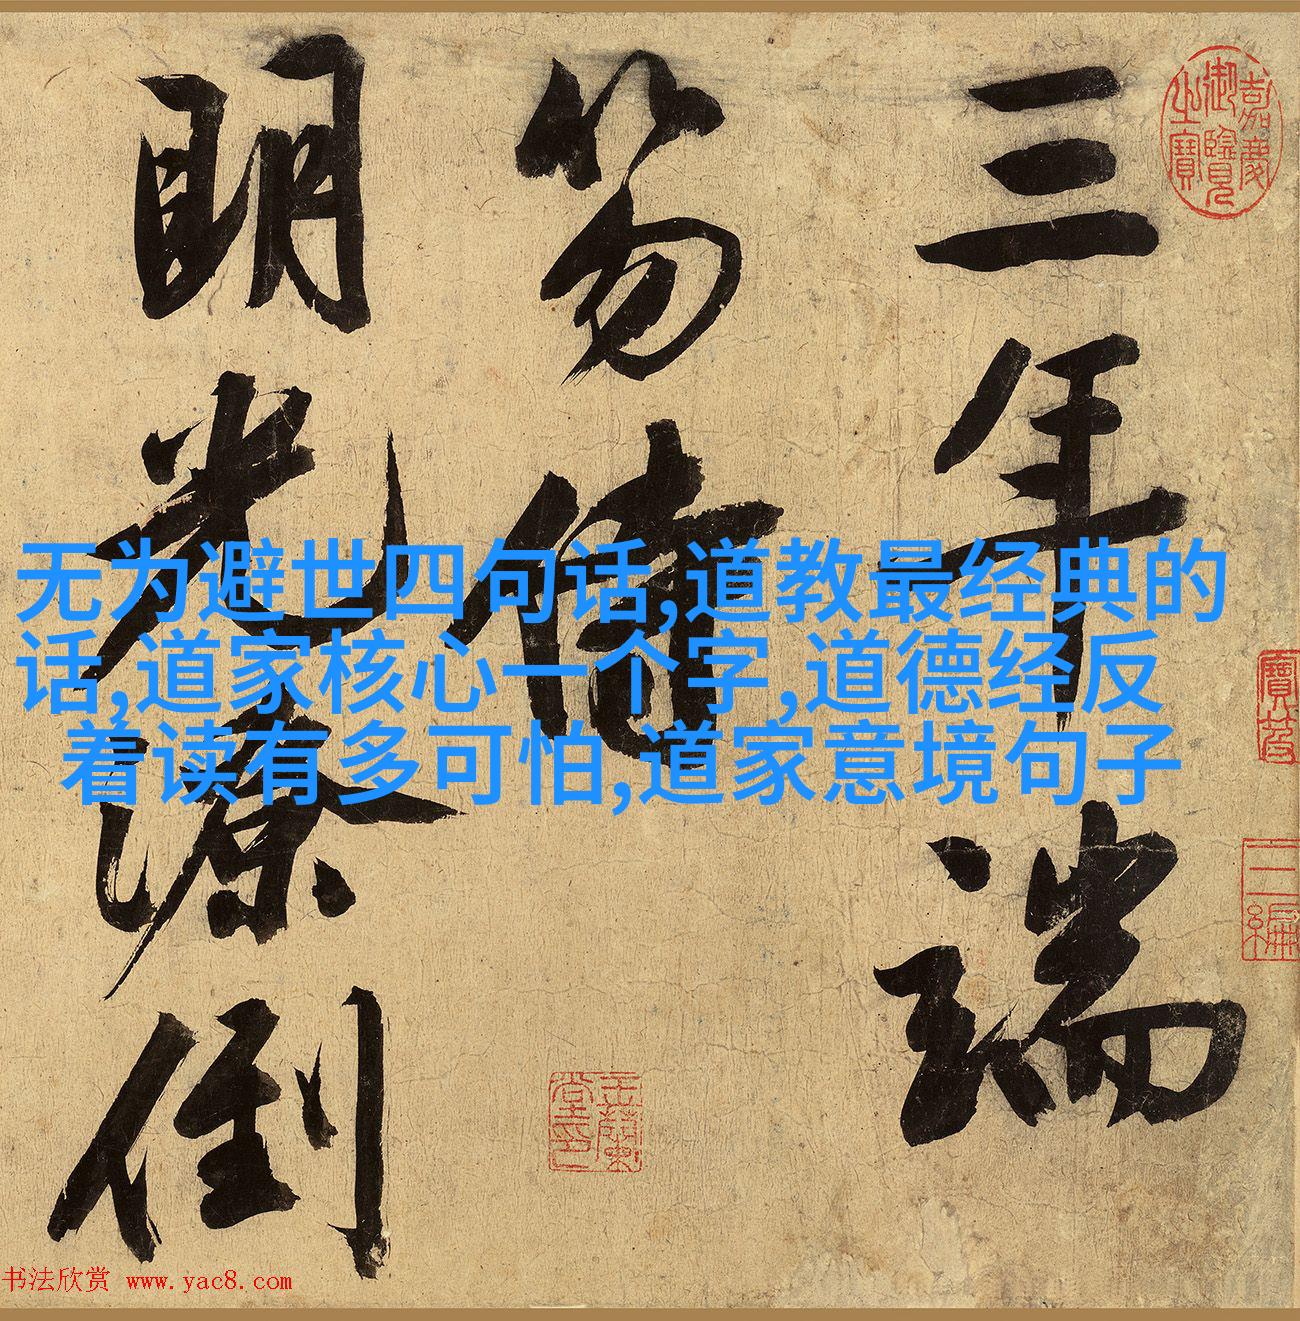 三年端
笏侍
明光潦倒
无为避世四句话,道教最经典的
话,道家核心一个字,道德经反
着读有多可怕,道家意境句子
嘉慶
御覽
之寶
三編
書法欣赏 www.yac8.com